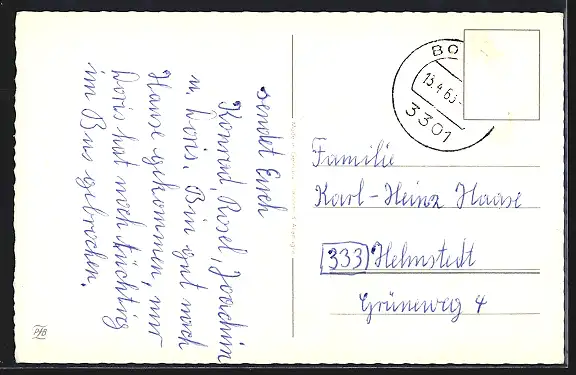 sendet Euch
Konrad, Rosel, Joachim
u. Doris. Bin gut nach
Hause gekommen, nur
Doris hat noch tüchtig
im Bus gebrochen.
BO
13.4.63
3301
Familie
Karl-Heinz Haase
333 Helmstedt
Grüneweg 4
PfB